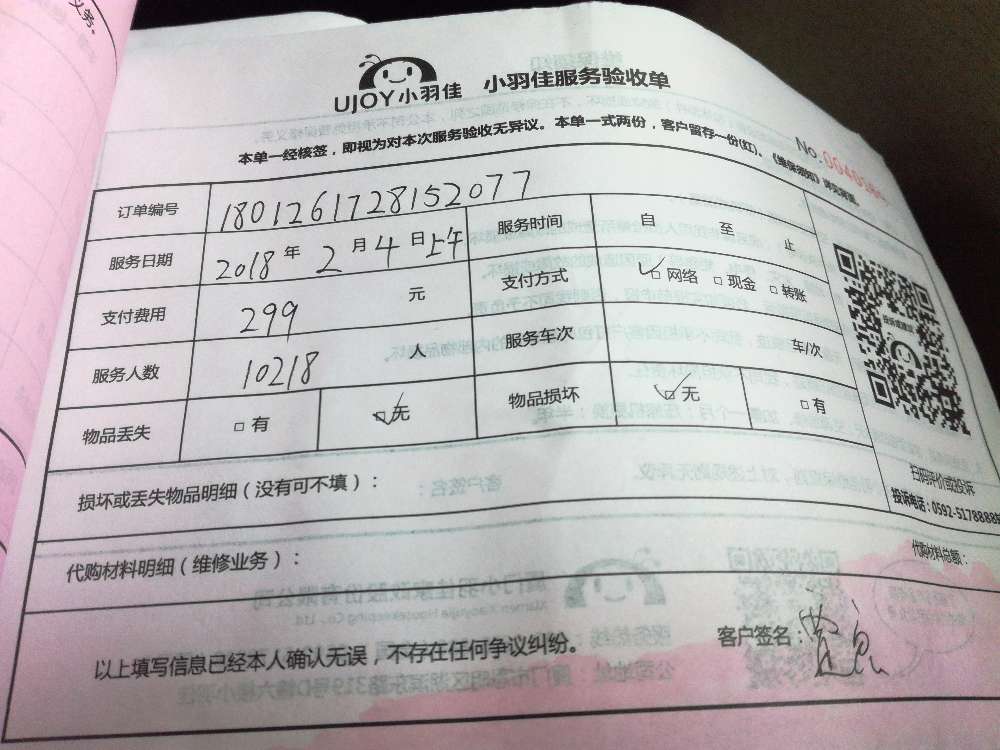 UJOY小羽佳 小羽佳服务验收单
本单一经核签，即视为对本次服务验收无异议。本单一式两份，客户留存一份(红)。《维保须知》详见背面。
No.
订单编号 1801261728152077
服务日期 2018 年 2 月 4 日上午 服务时间 自 至 止
支付费用 299 元 支付方式 ✓□ 网络 □ 现金 □ 转账
服务人数 10218 人 服务车次 车/次
物品丢失 □ 有 ✓□ 无 物品损坏 ✓□ 无 □ 有
扫码评价或投诉
投诉电话：0592-5178888
损坏或丢失物品明细（没有可不填）：
代购材料明细（维修业务）： 代购材料总额：
以上填写信息已经本人确认无误，不存在任何争议纠纷。 客户签名：